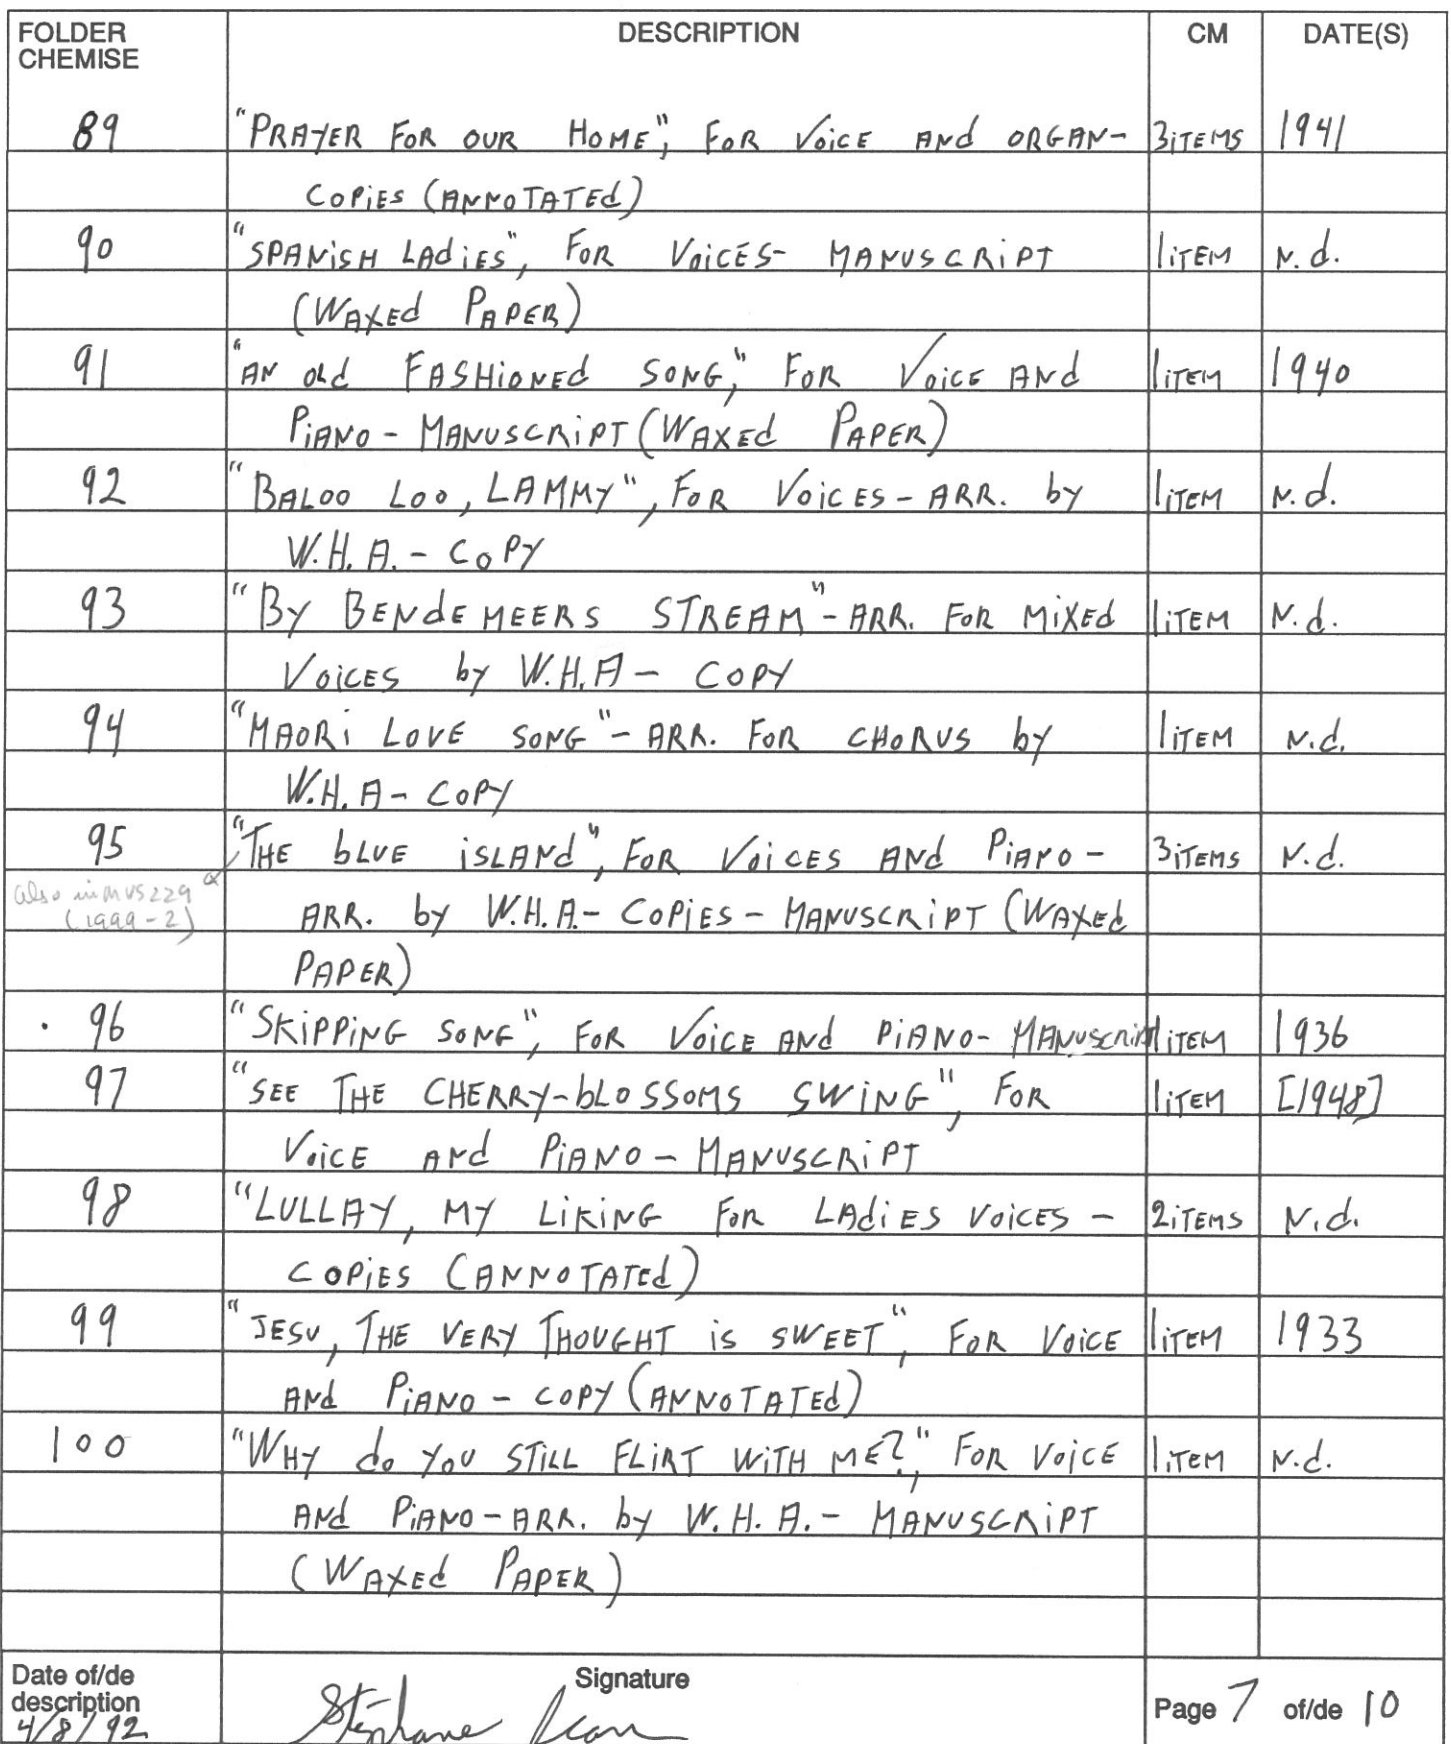 FOLDER DESCRIPTION CM DATE(S)
CHEMISE
89 "PRAYER FOR OUR HOME", FOR VOICE AND ORGAN- 3 ITEMS 1941
COPIES (ANNOTATED)
90 "SPANISH LADIES", FOR VOICES- MANUSCRIPT 1 ITEM N.d.
(WAXED PAPER)
91 "AN OLD FASHIONED SONG", FOR VOICE AND 1 ITEM 1940
PIANO - MANUSCRIPT (WAXED PAPER)
92 "BALOO LOO, LAMMY", FOR VOICES - ARR. by 1 ITEM N.d.
W.H.A. - COPY
93 "BY BENDEMEERS STREAM" - ARR. FOR MIXED 1 ITEM N.d.
VOICES by W.H.A - COPY
94 "MAORI LOVE SONG" - ARR. FOR CHORUS by 1 ITEM N.d.
W.H.A - COPY
95 "THE BLUE ISLAND", FOR VOICES AND PIANO - 3 ITEMS N.d.
also in MUS 229
(1999-2) ARR. by W.H.A. - COPIES - MANUSCRIPT (WAXED
PAPER)
96 "SKIPPING SONG", FOR VOICE AND PIANO - MANUSCRIPT 1 ITEM 1936
97 "SEE THE CHERRY-BLOSSOMS SWING", FOR 1 ITEM [1948]
VOICE AND PIANO - MANUSCRIPT
98 "LULLAY, MY LIKING FOR LADIES VOICES - 2 ITEMS N.d.
COPIES (ANNOTATED)
99 "JESU, THE VERY THOUGHT IS SWEET", FOR VOICE 1 ITEM 1933
AND PIANO - COPY (ANNOTATED)
100 "WHY do YOU STILL FLIRT WITH ME?", FOR VOICE 1 ITEM N.d.
AND PIANO - ARR. by W.H.A. - MANUSCRIPT
(WAXED PAPER)
Date of/de Signature
description Stéphane Jean Page 7 of/de 10
4/8/92